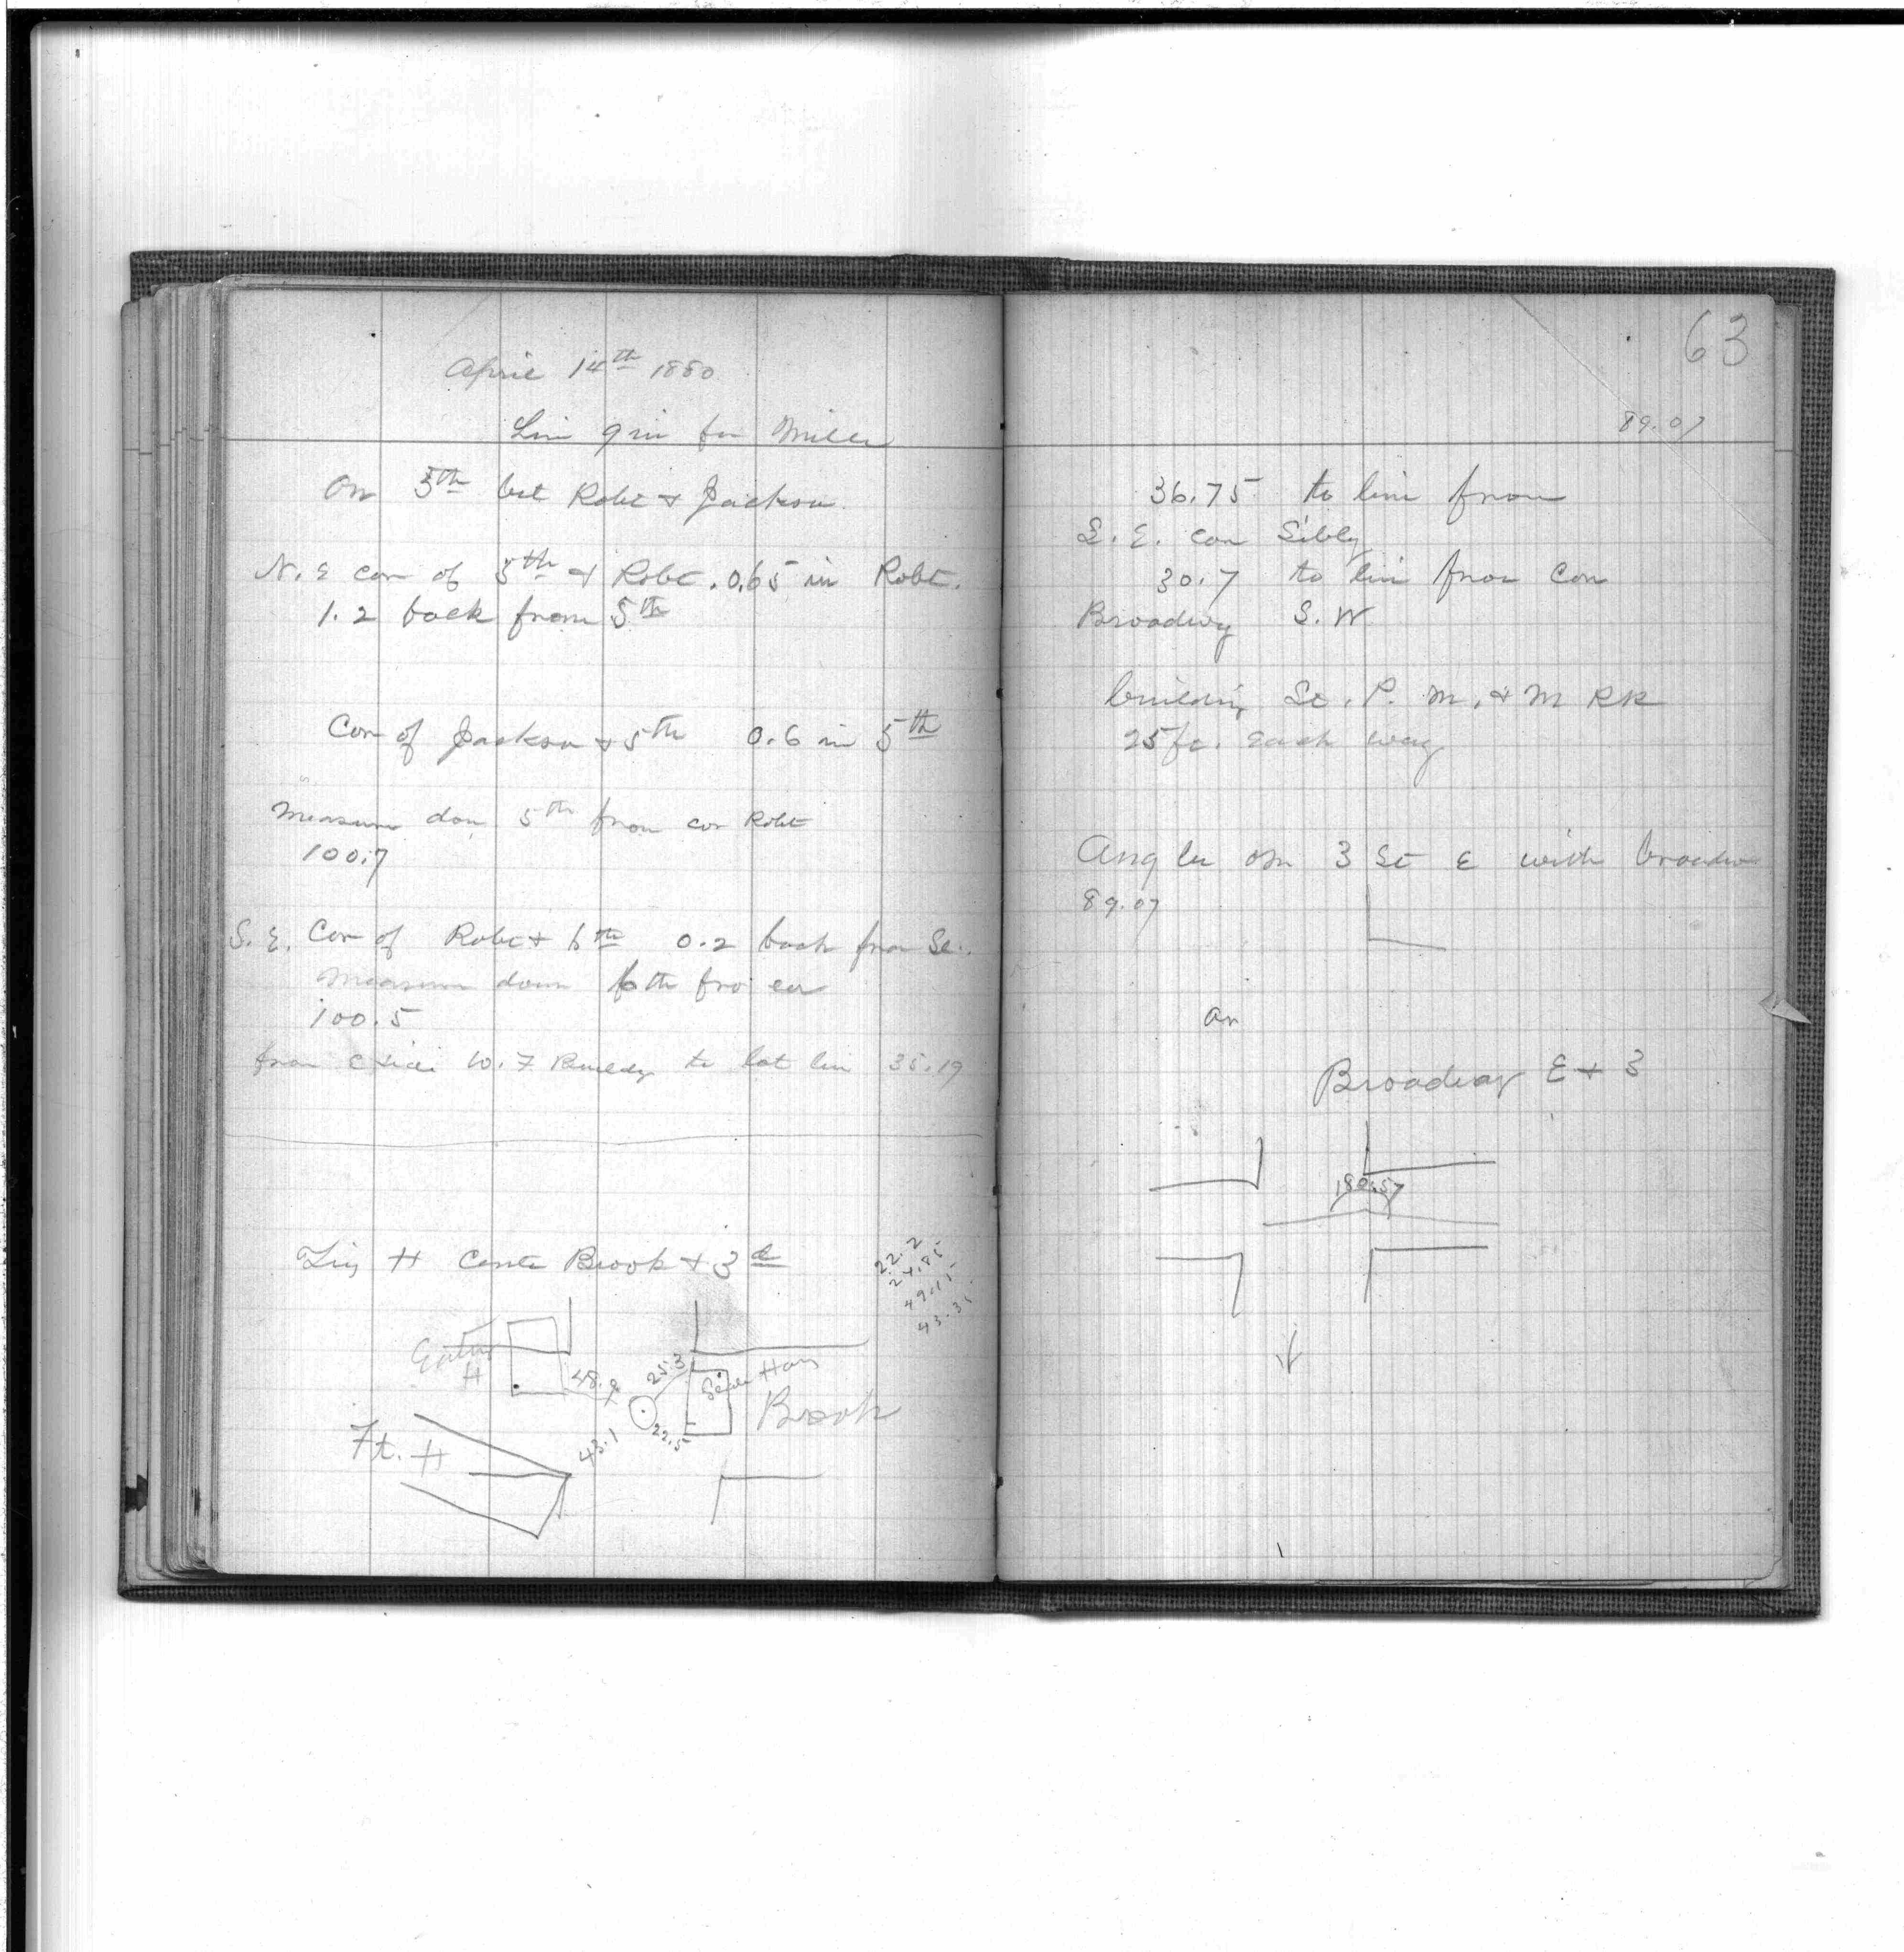 April 14th 1880
Line for Miller
On 5th bet Robt & Jackson
N. E cor of 5th & Robt. 0.65 in Robt.
1.2 back from 5th
Cor of Jackson & 5th 0.6 in 5th
Measure down 5th from cor Robt
100.7
S. E. Cor of Robt & 6th 0.2 back from St.
Measure down 6th fro cor
100.5
from E side to lot line 35.19
H Center Brook & 3d
22.2
24.85
49.15
43.35
H
48.9
25.3
Brook
22.5
43.1
Ft. H
63
89.07
36.75 to line from
S. E. cor Sibly
30.7 to line from Cor
Broadwy S. W
building St. P. M. & M RR
25 ft. each way
Angle on 3 St E with broadw
89.07
an
Broadway E & 3